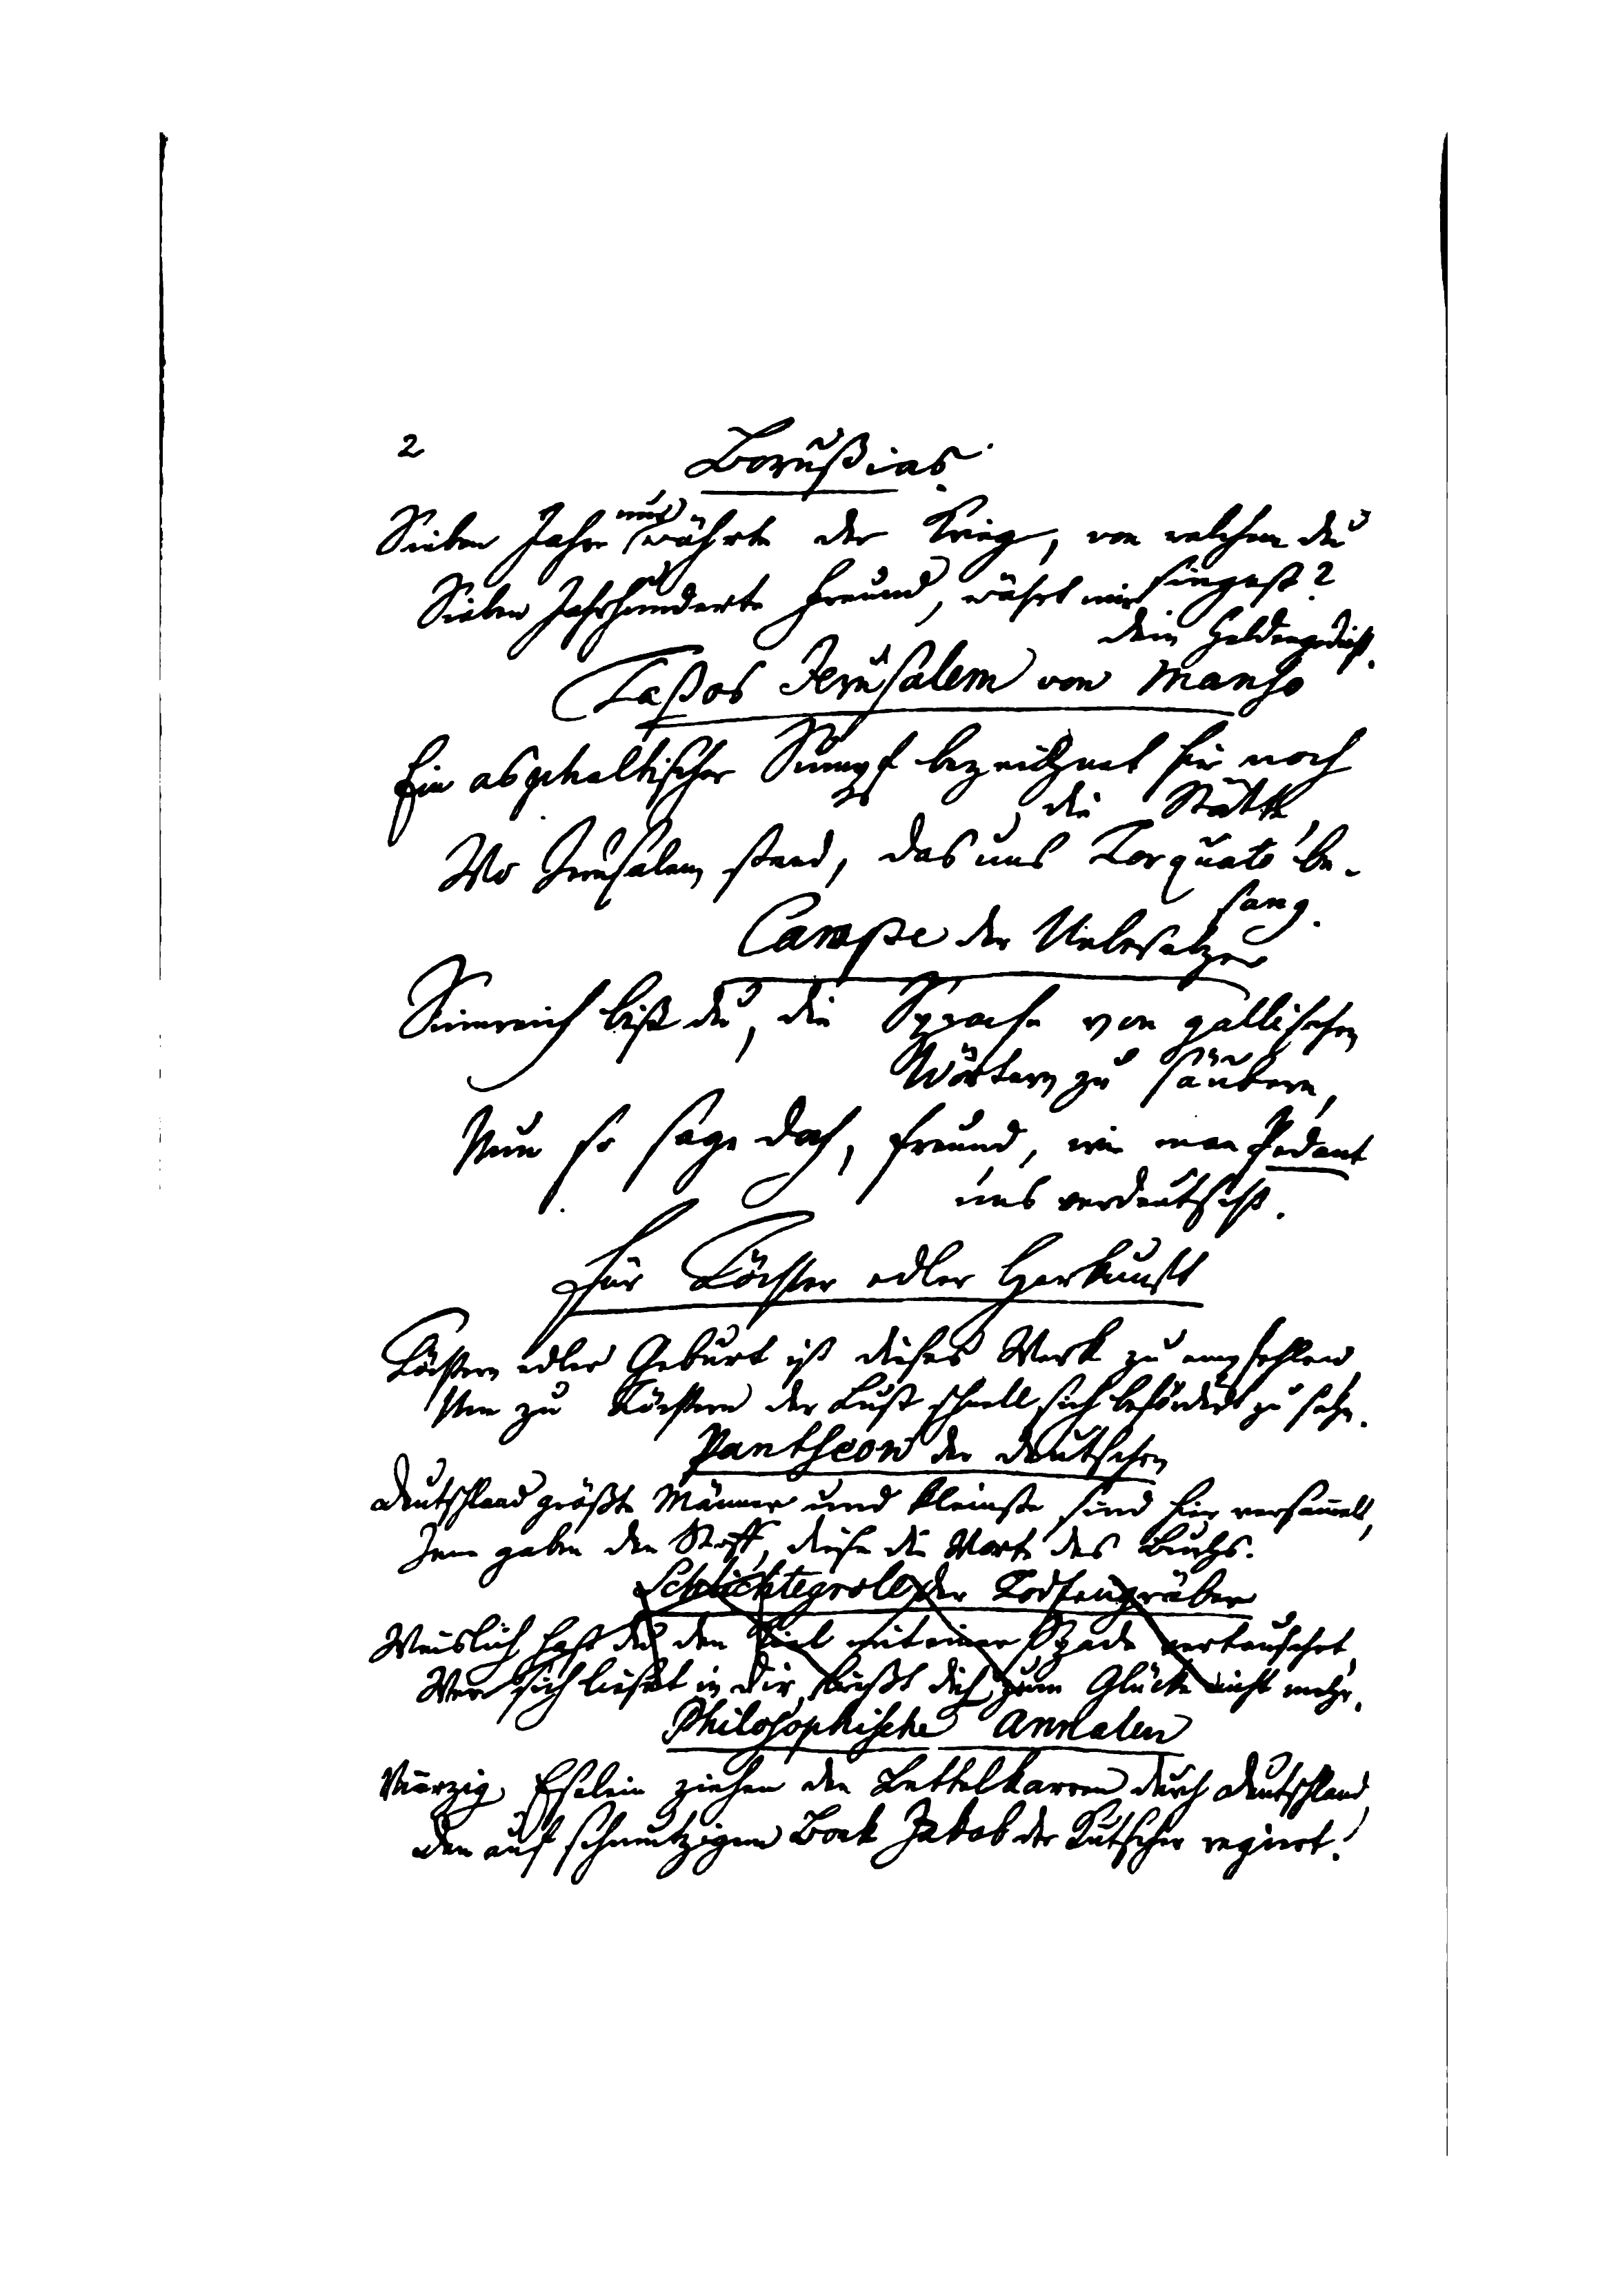 2
Borußias.
Sieben Jahre nur währte der Krieg, von welchem du
singest?
Sieben Jahrhunderte Freund, währt mir
dein Heldengedicht.
Taßos Jerusalem von Manso
Ein asphaltischer Sumpf bezeichnet hier noch
die Stätte,
Wo Jerusalem stand, das uns Torquato be-
sang.
Campe der Uebersetzer
Sinnreich bist du, die Sprache von gallischen
Wörtern zu säubern,
Nun so sage doch, Freund, wie man Pedant
uns verdeutscht.
Für Töchter edler Herkunft
Töchtern edler Geburt ist dieses Werk zu empfehlen
Um zu Töchtern der Lust schnell sich befördert zu sehn.
Pantheon der Deutschen
Deutschland größte Männer und kleinste sind hier versam̄elt,
Jene gaben den Stoff, diese die Worte des Buchs.
Schlichtegroll der Todtengräber
Weislich hast du den Kiel mit einer Spade vertauschet
Wer sich lieset in dir, liest dich zum Glücke nicht mehr.
Philosophische Annalen
Vierzig Eselein ziehen den Bettelkarren durch Deutschland
Den auf schmutzigem Bock Jakob der Kutscher regiert!